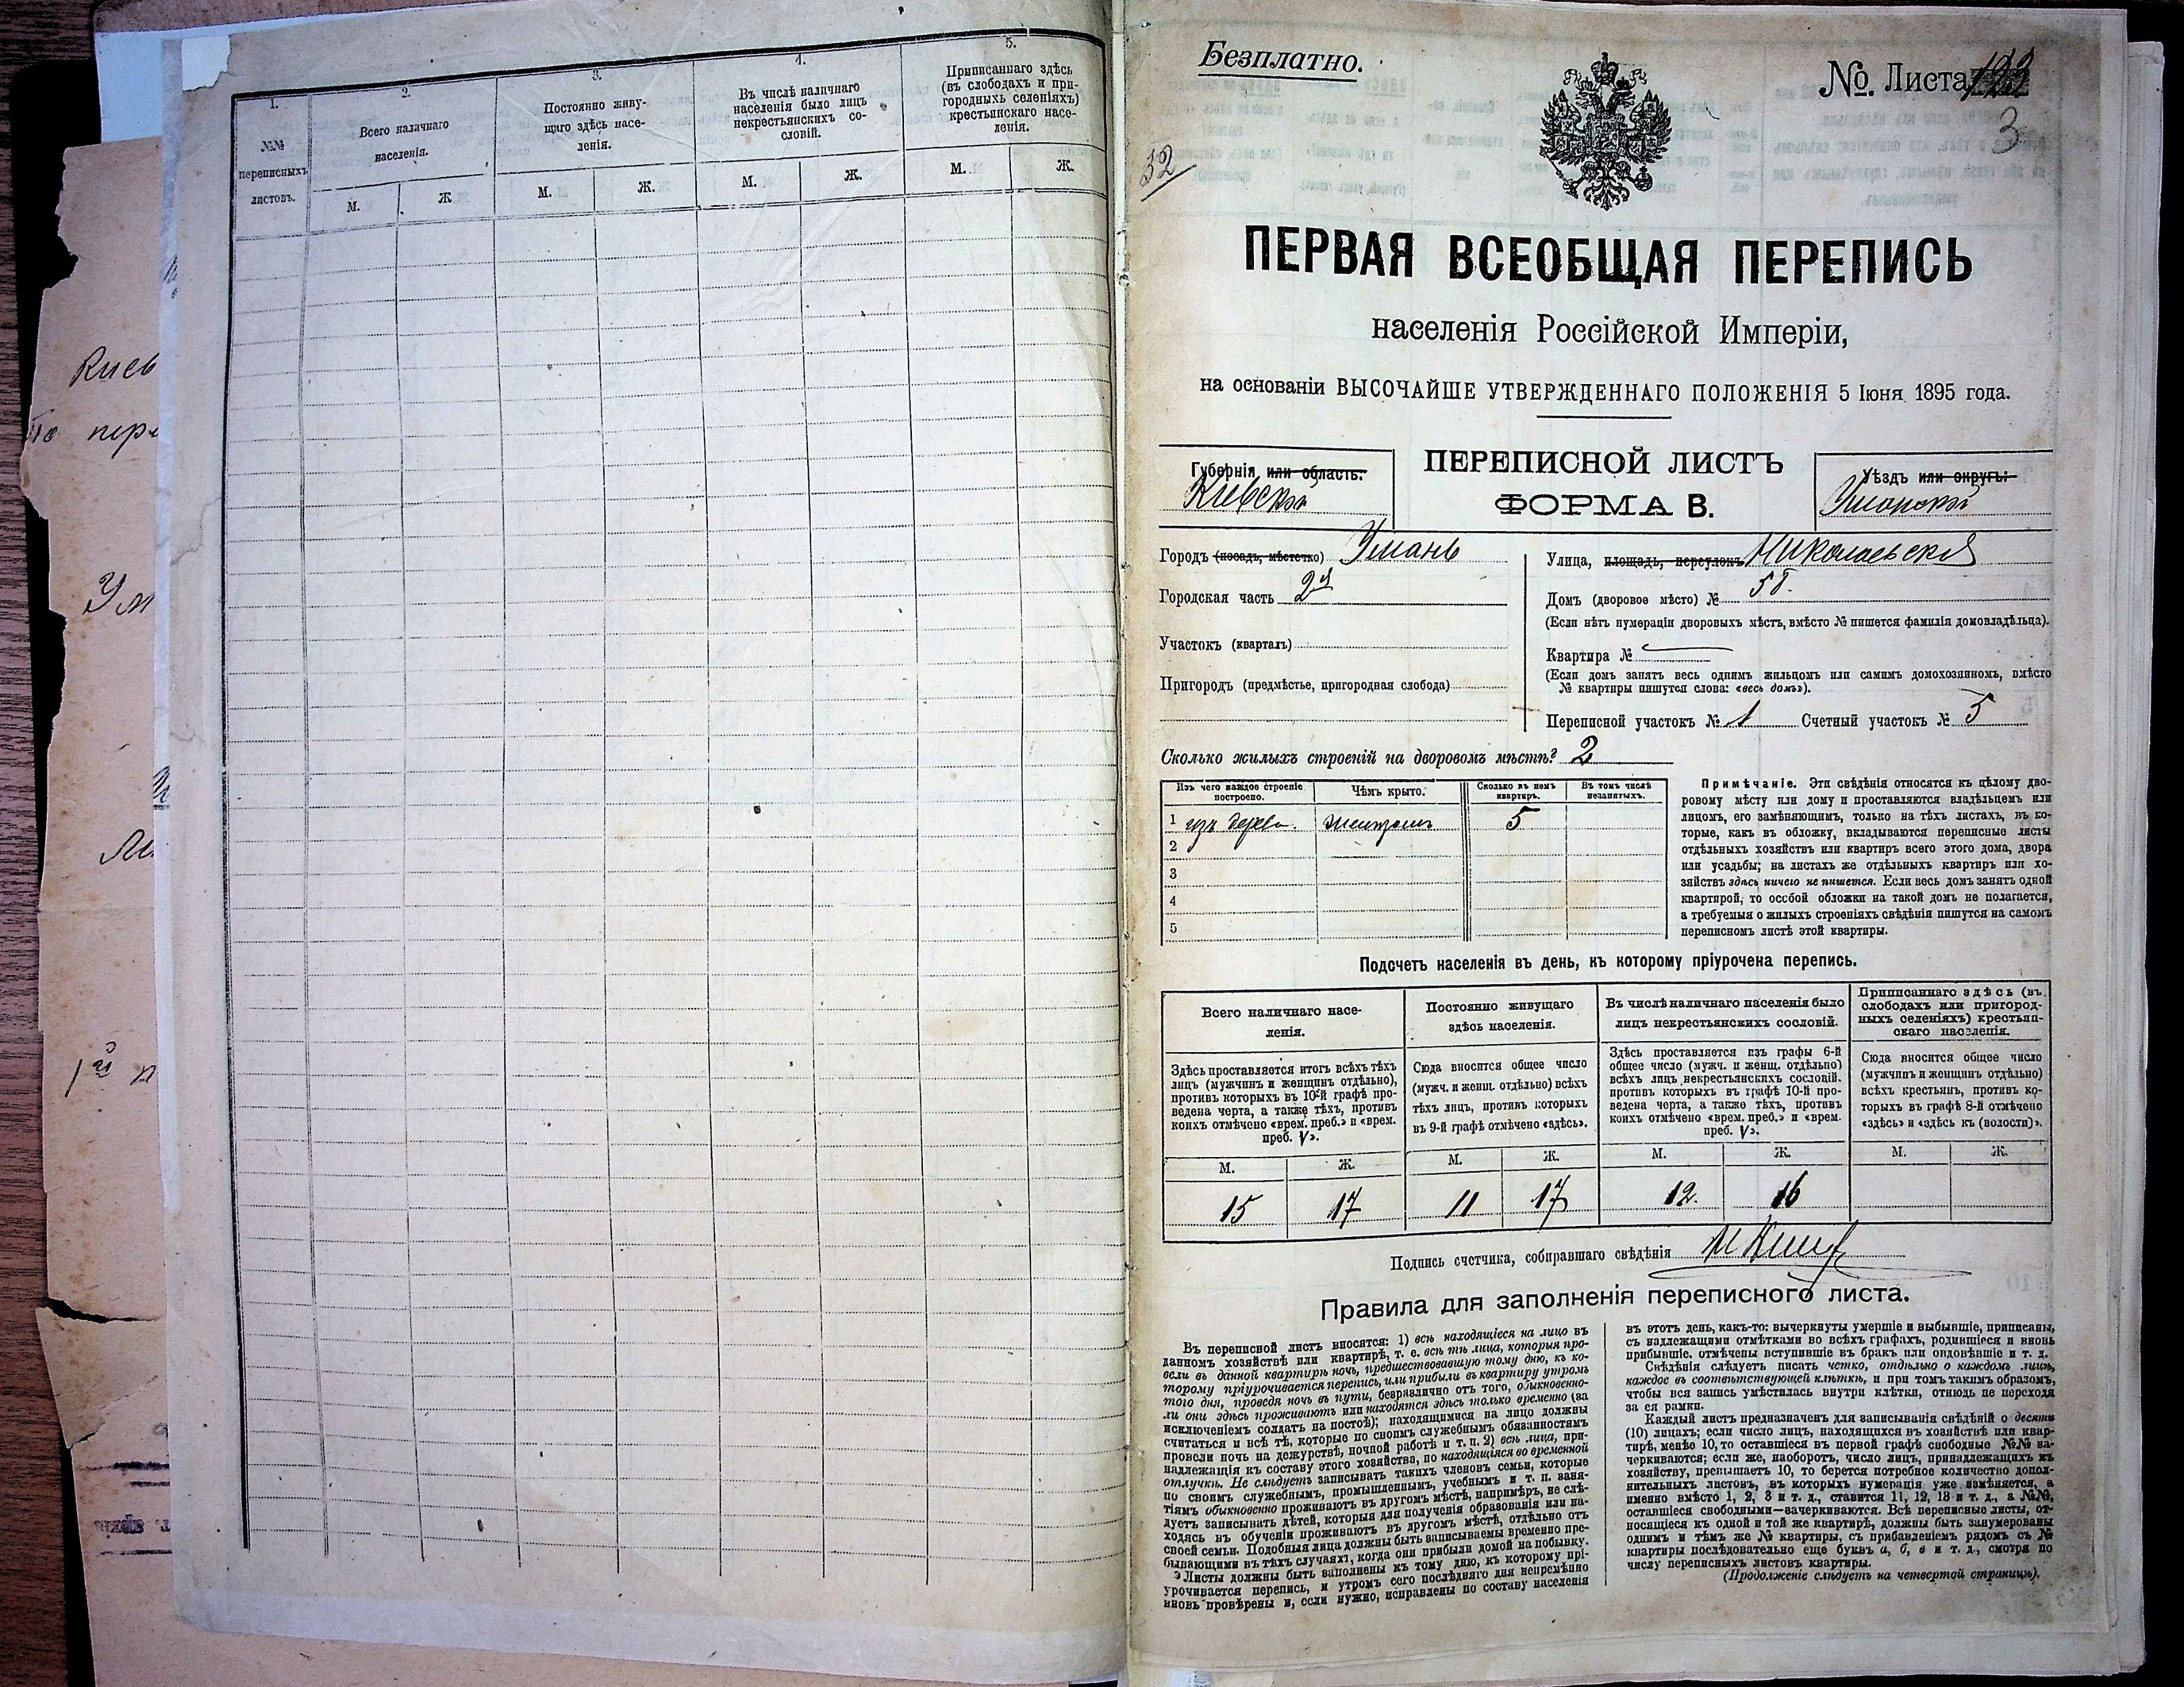 1.
№№
переписныхъ
листовъ.
2.
Всего наличнаго
населенія.
М.
Ж
3.
Постоянно живу-
щаго здѣсь насе-
ленія.
М.
Ж.
4.
Въ числѣ наличнаго
населенія было лицъ
некрестьянскихъ со-
словій.
М.
Ж.
5.
Приписаннаго здѣсь
(въ слободахъ и при-
городныхъ селеніяхъ)
крестьянскаго насе-
ленія.
М.
Ж.
Киев
Ум
1й
Безплатно.
№. Листа
3
32
ПЕРВАЯ ВСЕОБЩАЯ ПЕРЕПИСЬ
населенія Россійской Имперіи,
на основаніи ВЫСОЧАЙШЕ УТВЕРЖДЕННАГО ПОЛОЖЕНІЯ 5 Іюня 1895 года.
Губернія или область:
Кіевская
ПЕРЕПИСНОЙ ЛИСТЪ
ФОРМА В.
Уѣздъ или округъ:
Уманскій
Городъ (посадъ, мѣстечко) Умань
Городская часть 2я
Участокъ (кварталъ)
Пригородъ (предмѣстье, пригородная слобода)
Улица, площадь, переулокъ Николаевская
Домъ (дворовое мѣсто) №
(Если нѣтъ нумераціи дворовыхъ мѣстъ, вмѣсто № пишется фамилія домовладѣльца).
Квартира №
(Если домъ занятъ весь однимъ жильцомъ или самимъ домохозяиномъ, вмѣсто
№ квартиры пишутся слова: «весь домъ»).
Переписной участокъ № 1 Счетный участокъ № 5
Сколько жилыхъ строеній на дворовомъ мѣстѣ? 2
Изъ чего каждое строеніе
построено.
Чѣмъ крыто.
Сколько въ немъ
квартиръ.
Въ томъ числѣ
незанятыхъ.
1 изъ дерева. 5
2
3
4
5
Примѣчаніе. Эти свѣдѣнія относятся къ цѣлому дво-
ровому мѣсту или дому и проставляются владѣльцемъ или
лицомъ, его замѣняющимъ, только на тѣхъ листахъ, въ ко-
торые, какъ въ обложку, вкладываются переписные листы
отдѣльныхъ хозяйствъ или квартиръ всего этого дома, двора
или усадьбы; на листахъ же отдѣльныхъ квартиръ или хо-
зяйствъ здѣсь ничего не пишется. Если весь домъ занятъ одной
квартирой, то особой обложки на такой домъ не полагается,
а требуемыя о жилыхъ строеніяхъ свѣдѣнія пишутся на самомъ
переписномъ листѣ этой квартиры.
Подсчетъ населенія въ день, къ которому пріурочена перепись.
Всего наличнаго насе-
ленія.
Здѣсь проставляется итогъ всѣхъ тѣхъ
лицъ (мужчинъ и женщинъ отдѣльно),
противъ которыхъ въ 10-й графѣ про-
ведена черта, а также тѣхъ, противъ
коихъ отмѣчено «врем. преб.» и «врем.
преб. V».
М.
Ж.
15
17
Постоянно живущаго
здѣсь населенія.
Сюда вносится общее число
(мужч. и женщ. отдѣльно) всѣхъ
тѣхъ лицъ, противъ которыхъ
въ 9-й графѣ отмѣчено «здѣсь».
М.
Ж.
11
17
Въ числѣ наличнаго населенія было
лицъ некрестьянскихъ сословій.
Здѣсь проставляется изъ графы 6-й
общее число (мужч. и женщ. отдѣльно)
всѣхъ лицъ некрестьянскихъ сослоцій.
противъ которыхъ въ графѣ 10-й про-
ведена черта, а также тѣхъ, противъ
коихъ отмѣчено «врем. преб.» и «врем.
преб. V».
М.
Ж.
12.
16
Приписаннаго здѣсь (въ
слободахъ или пригород-
ныхъ селеніяхъ) крестьян-
скаго населенія.
Сюда вносится общее число
(мужчинъ и женщинъ отдѣльно)
всѣхъ крестьянъ, противъ ко-
торыхъ въ графѣ 8-й отмѣчено
«здѣсь» и «здѣсь къ (волости)».
М.
Ж.
Подпись счетчика, собиравшаго свѣдѣнія
Правила для заполненія переписного листа.
Въ переписной листъ вносятся: 1) всѣ находящіеся на лицо въ
данномъ хозяйствѣ или квартирѣ, т. е. всѣ тѣ лица, которыя про-
вели въ данной квартирѣ ночь, предшествовавшую тому дню, къ ко-
торому пріурочивается перепись, или прибыли въ квартиру утромъ
того дня, проведя ночь въ пути, безразлично отъ того, обыкновенно-
ли они здѣсь проживаютъ или находятся здѣсь только временно (за
исключеніемъ солдатъ на постоѣ); находящимися на лицо должны
считаться и всѣ тѣ, которые по своимъ служебнымъ обязанностямъ
провели ночь на дежурствѣ, ночной работѣ и т. п. 2) всѣ лица, при-
надлежащія къ составу этого хозяйства, но находящіяся во временной
отлучкѣ. Не слѣдуетъ записывать такихъ членовъ семьи, которые
по своимъ служебнымъ, промышленнымъ, учебнымъ и т. п. заня-
тіямъ обыкновенно проживаютъ въ другомъ мѣстѣ, напримѣръ, не слѣ-
дуетъ записывать дѣтей, которыя для полученія образованія или на-
ходясь въ обученіи проживаютъ въ другомъ мѣстѣ, отдѣльно отъ
своей семьи. Подобныя лица должны быть записываемы временно пре-
бывающими въ тѣхъ случаяхъ, когда они прибыли домой на побывку.
Листы должны быть заполнены къ тому дню, къ которому прі-
урочивается перепись, и утромъ сего послѣдняго дня непремѣнно
вновь провѣрены и, если нужно, исправлены по составу населенія
въ этотъ день, какъ-то: вычеркнуты умершіе и выбывшіе, приписаны,
съ надлежащими отмѣтками во всѣхъ графахъ, родившіеся и вновь
прибывшіе, отмѣчены вступившіе въ бракъ или овдовѣвшіе и т. д.
Свѣдѣнія слѣдуетъ писать четко, отдѣльно о каждомъ лицѣ,
каждое въ соотвѣтствующей клѣткѣ, и при томъ такимъ образомъ,
чтобы вся запись умѣстилась внутри клѣтки, отнюдь не переходя
за ея рамки.
Каждый листъ предназначенъ для записыванія свѣдѣній о десяти
(10) лицахъ; если число лицъ, находящихся въ хозяйствѣ или квар-
тирѣ, менѣе 10, то оставшіеся въ первой графѣ свободные №№ за-
черкиваются; если же, наоборотъ, число лицъ, принадлежащихъ къ
хозяйству, превышаетъ 10, то берется потребное количество допол-
нительныхъ листовъ, въ которыхъ нумерація уже измѣняется, а
именно вмѣсто 1, 2, 3 и т. д., ставится 11, 12, 13 и т. д., а №№,
оставшіеся свободными—зачеркиваются. Всѣ переписные листы, от-
носящіеся къ одной и той же квартирѣ, должны быть занумерованы
однимъ и тѣмъ же № квартиры, съ прибавленіемъ рядомъ съ №
квартиры послѣдовательно еще буквъ а, б, в и т. д., смотря по
числу переписныхъ листовъ квартиры.
(Продолженіе слѣдуетъ на четвертой страницѣ).